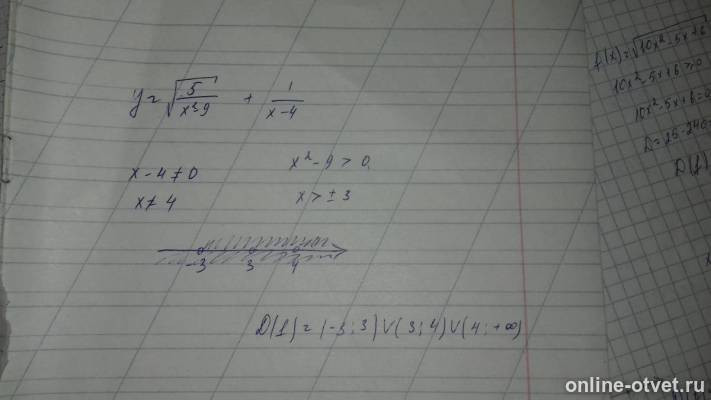 y = √(5/(x²-9)) + 1/(x-4)
x-4≠0
x²-9>0
x≠4
x>±3
-3 3 4
D(f)=(-3;3)∪(3;4)∪(4;+∞)
f(x)=√(10x²-5x+6
10x²-5x+6≥0
10x²-5x+6=0
D=25-240=
D(f)
online-otvet.ru